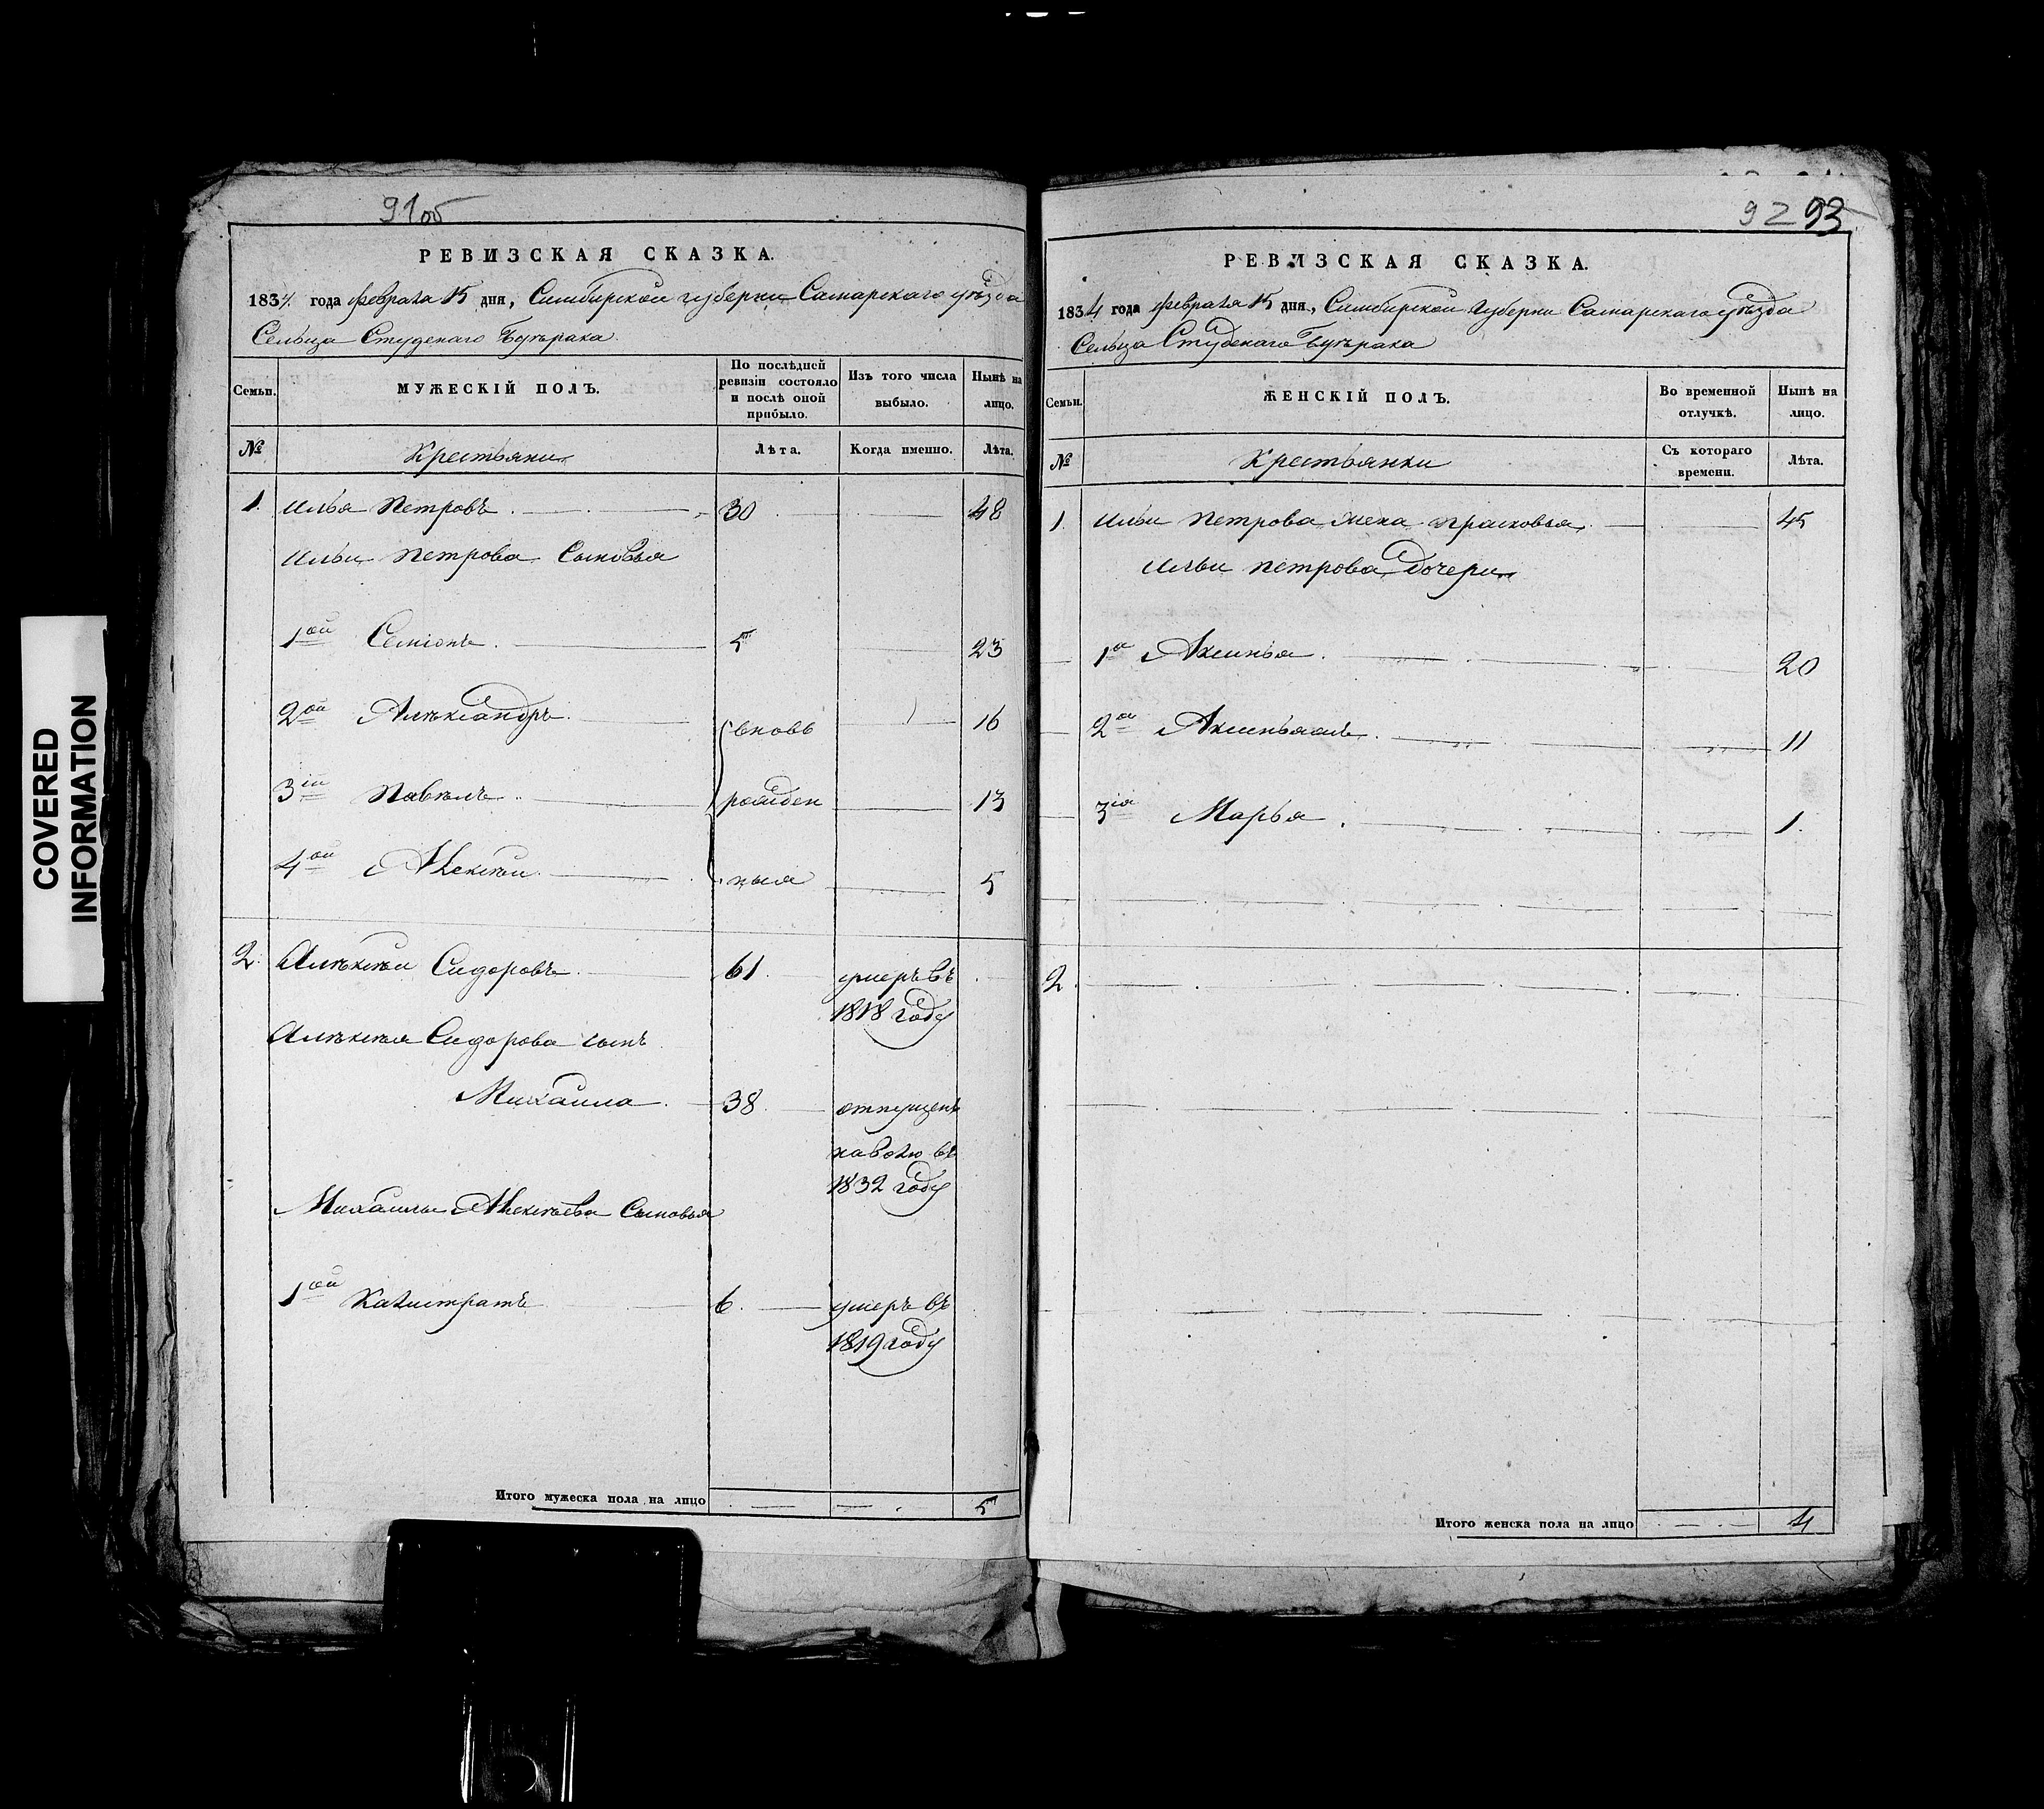 COVERED
INFORMATION
91об
РЕВИЗСКАЯ СКАЗКА.
1834 года февраля 15 дня, Симбирской губерни Самарскаго уѣзда
Сельца Студенаго Буерака
Семьи.
МУЖЕСКІЙ ПОЛЪ.
По послѣдней
ревизіи состояло
и послѣ оной
прибыло.
Изъ того числа
выбыло.
Нынѣ на
лицо.
№
Крестьяни
Лѣта.
Когда именно.
Лѣта.
1. Илья Петровъ 30 48
Ильи Петрова Сыновья
1ой Семіонъ 5 23
2ой Алѣксандръ вновь 16
3ій Павѣлъ рожден 13
4ой Алексѣй ныя 5
2. Алѣксѣи Сидоровъ 61 умеръ въ
1818 году
Алѣксѣя Сидорова сынъ
Михаила 38 отпущенъ
наволю въ
1832 году
Михаилы Алексѣева Сыновья
1ой Калистратъ 6 умеръ въ
1819 году
Итого мужеска пола на лицо 5
92 93
РЕВИЗСКАЯ СКАЗКА.
1834 года февраля 15 дня, Симбирской Губерни Самарскаго уѣзда
Сельца Студенаго Буерака
Семьи.
ЖЕНСКІЙ ПОЛЪ.
Во временной
отлучкѣ.
Нынѣ на
лицо.
№
Крестьянки
Съ котораго
времени.
Лѣта.
1. Ильи Петрова жена Прасковья 45
Ильи Петрова дочери
1я Аксинья 20
2я 11
3ія Марья 1.
2.
Итого женска пола на лицо 4